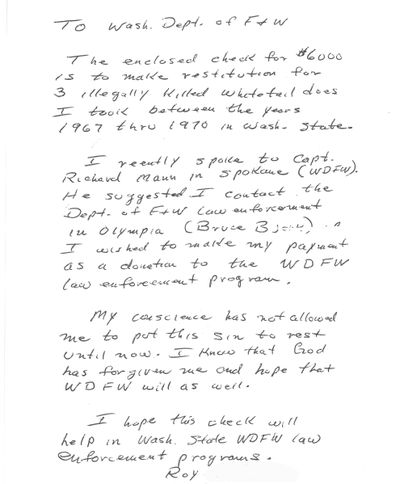 To Wash. Dept. of F+W
The enclosed check for $6000
is to make restitution for
3 illegally killed whitetail does
I took between the years
1967 thru 1970 in Wash. State.
I reently spoke to Capt.
Richard Mann in Spokane (WDFW).
He suggested I contact the
Dept. of F+W law enforcement
in Olympia (Bruce
I wished to make my payment
as a donation to the WDFW
law enforcement program.
My conscience has not allowed
me to put this sin to rest
until now. I know that God
has forgiven me and hope that
WDFW will as well.
I hope this check will
help in Wash. State WDFW law
enforcement programs.
Roy